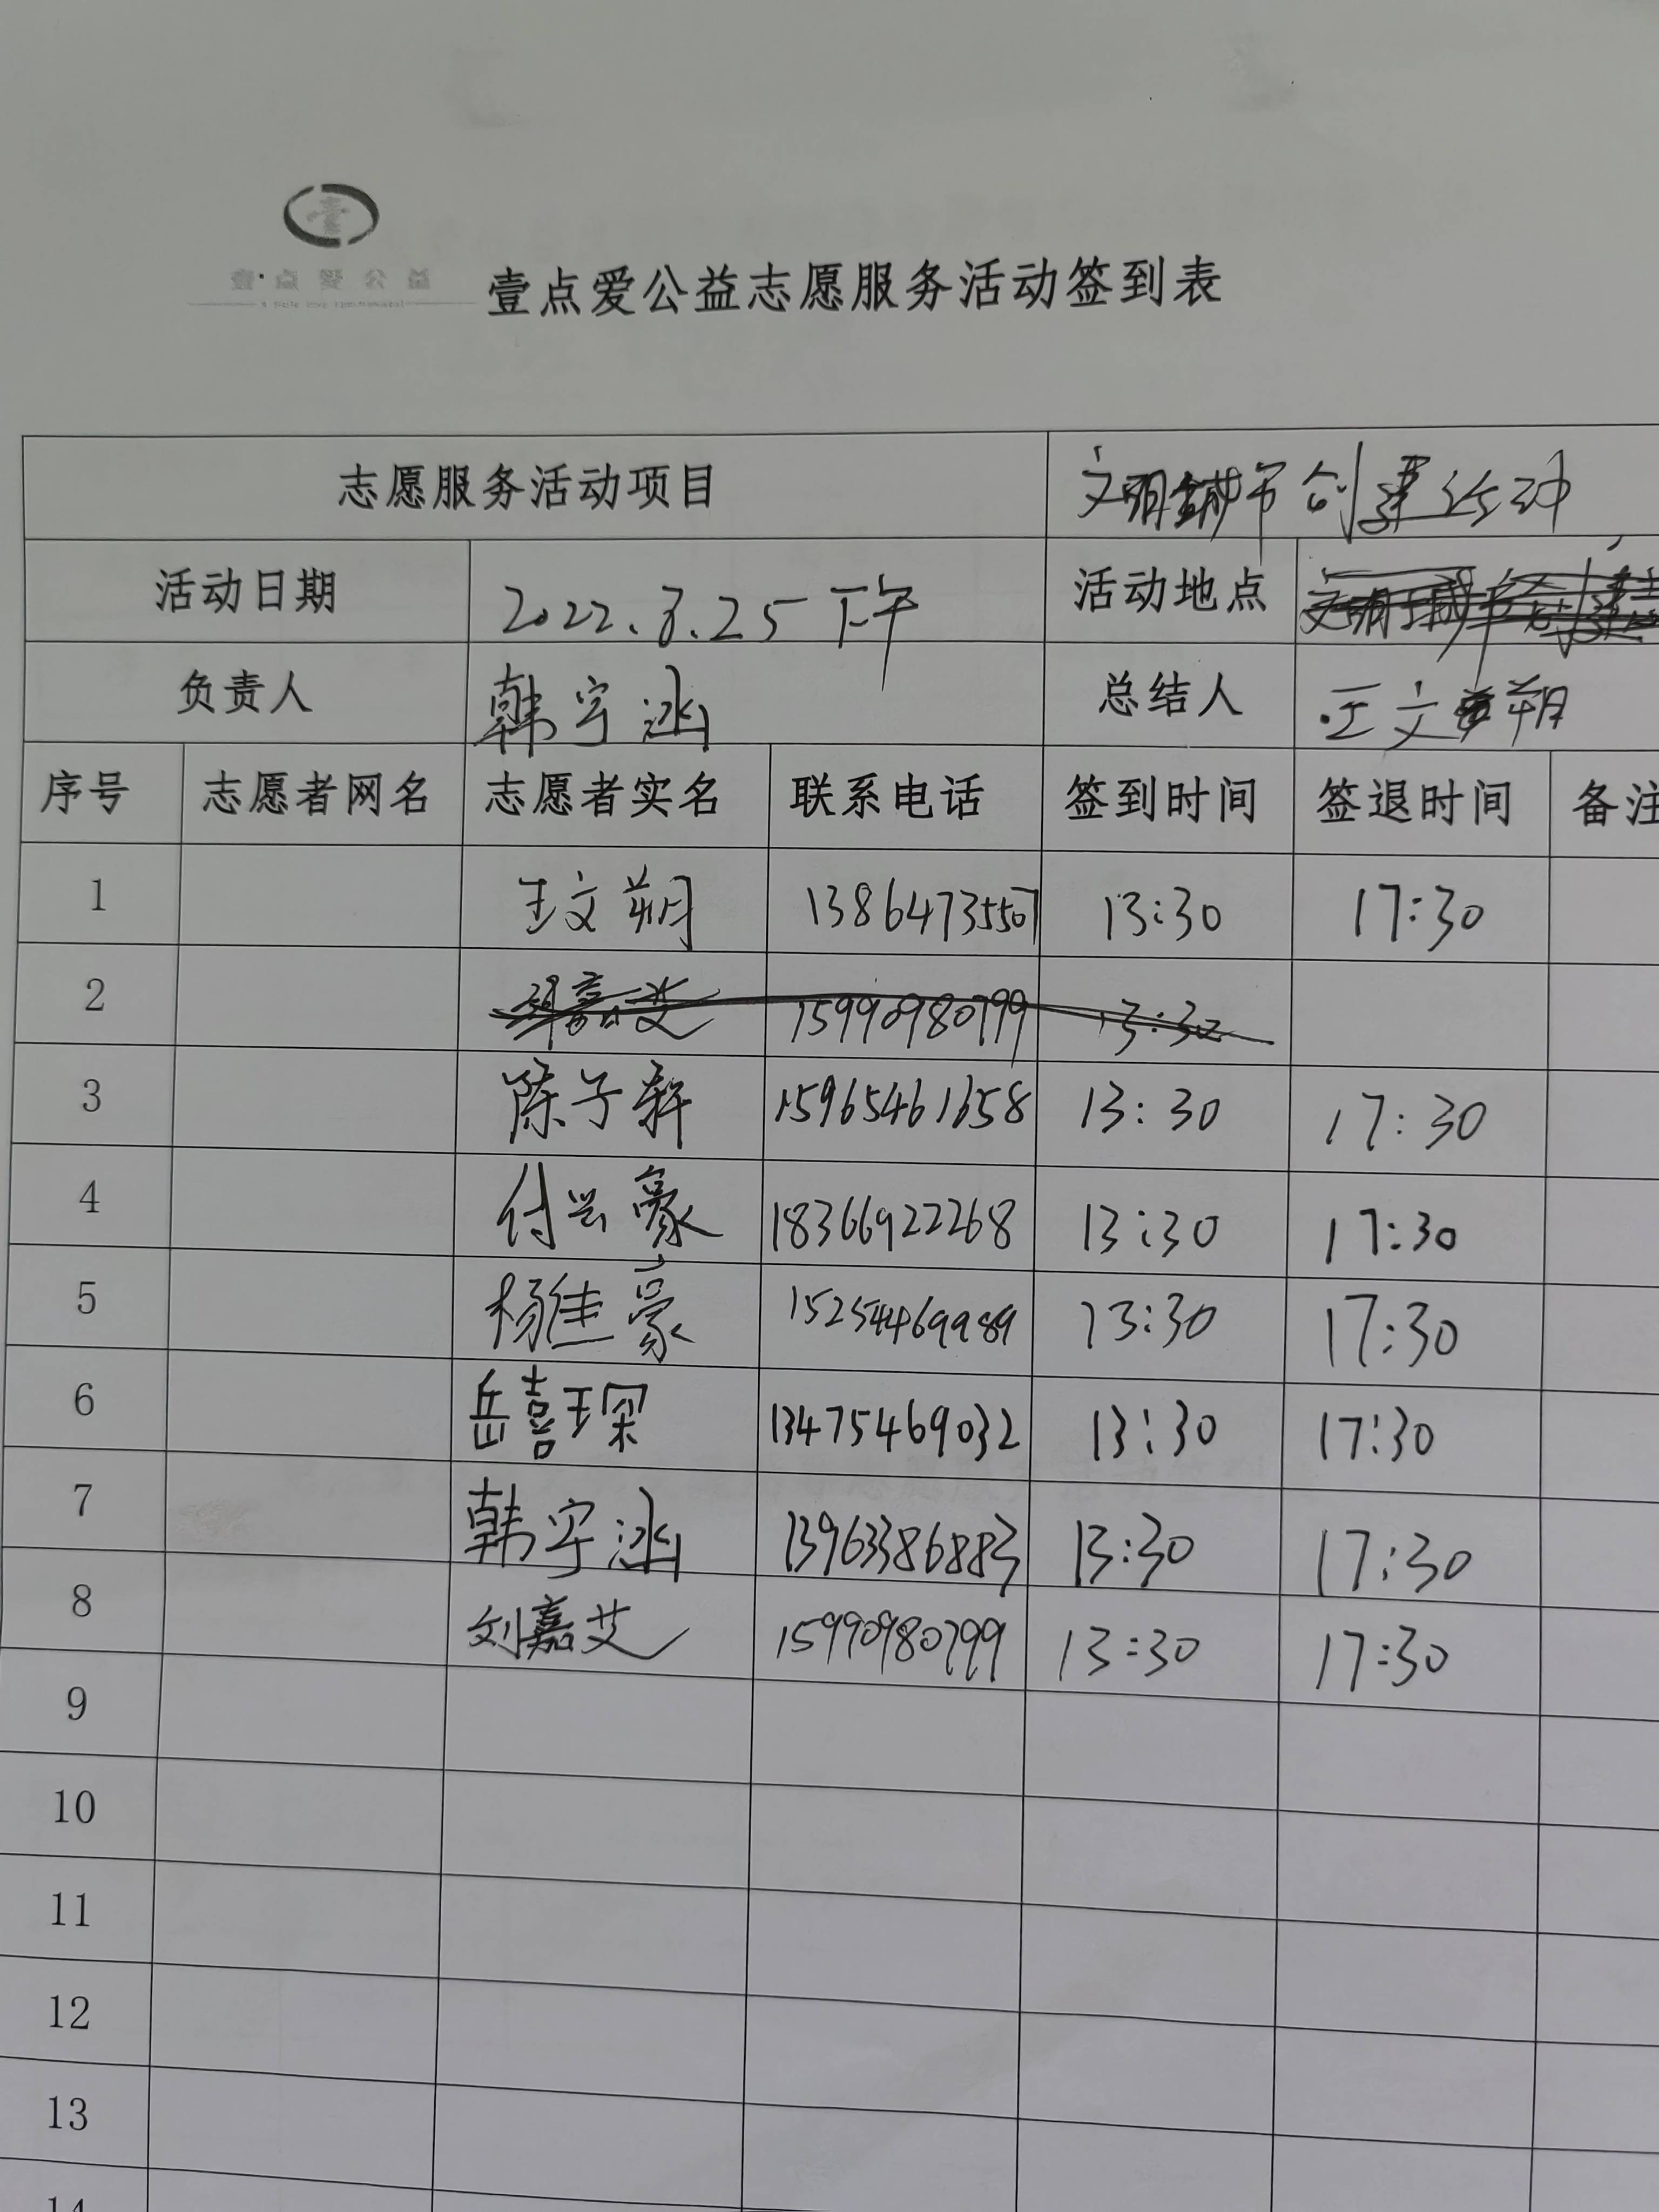 壹点爱公益
壹点爱公益志愿服务活动签到表
志愿服务活动项目 文明城市创建活动
活动日期 2022.8.25下午 活动地点
负责人 韩宇涵 总结人 王文朔
序号 志愿者网名 志愿者实名 联系电话 签到时间 签退时间 备注
1 王文朔 13864735507 13:30 17:30
2 刘嘉艾 15990980799 13:30
3 陈子轩 15965461658 13:30 17:30
4 付兴豪 18366922268 13:30 17:30
5 杨佳豪 15254469989 13:30 17:30
6 岳喜琛 13475469032 13:30 17:30
7 韩宇涵 13963386883 13:30 17:30
8 刘嘉艾 15990980799 13:30 17:30
9
10
11
12
13
14